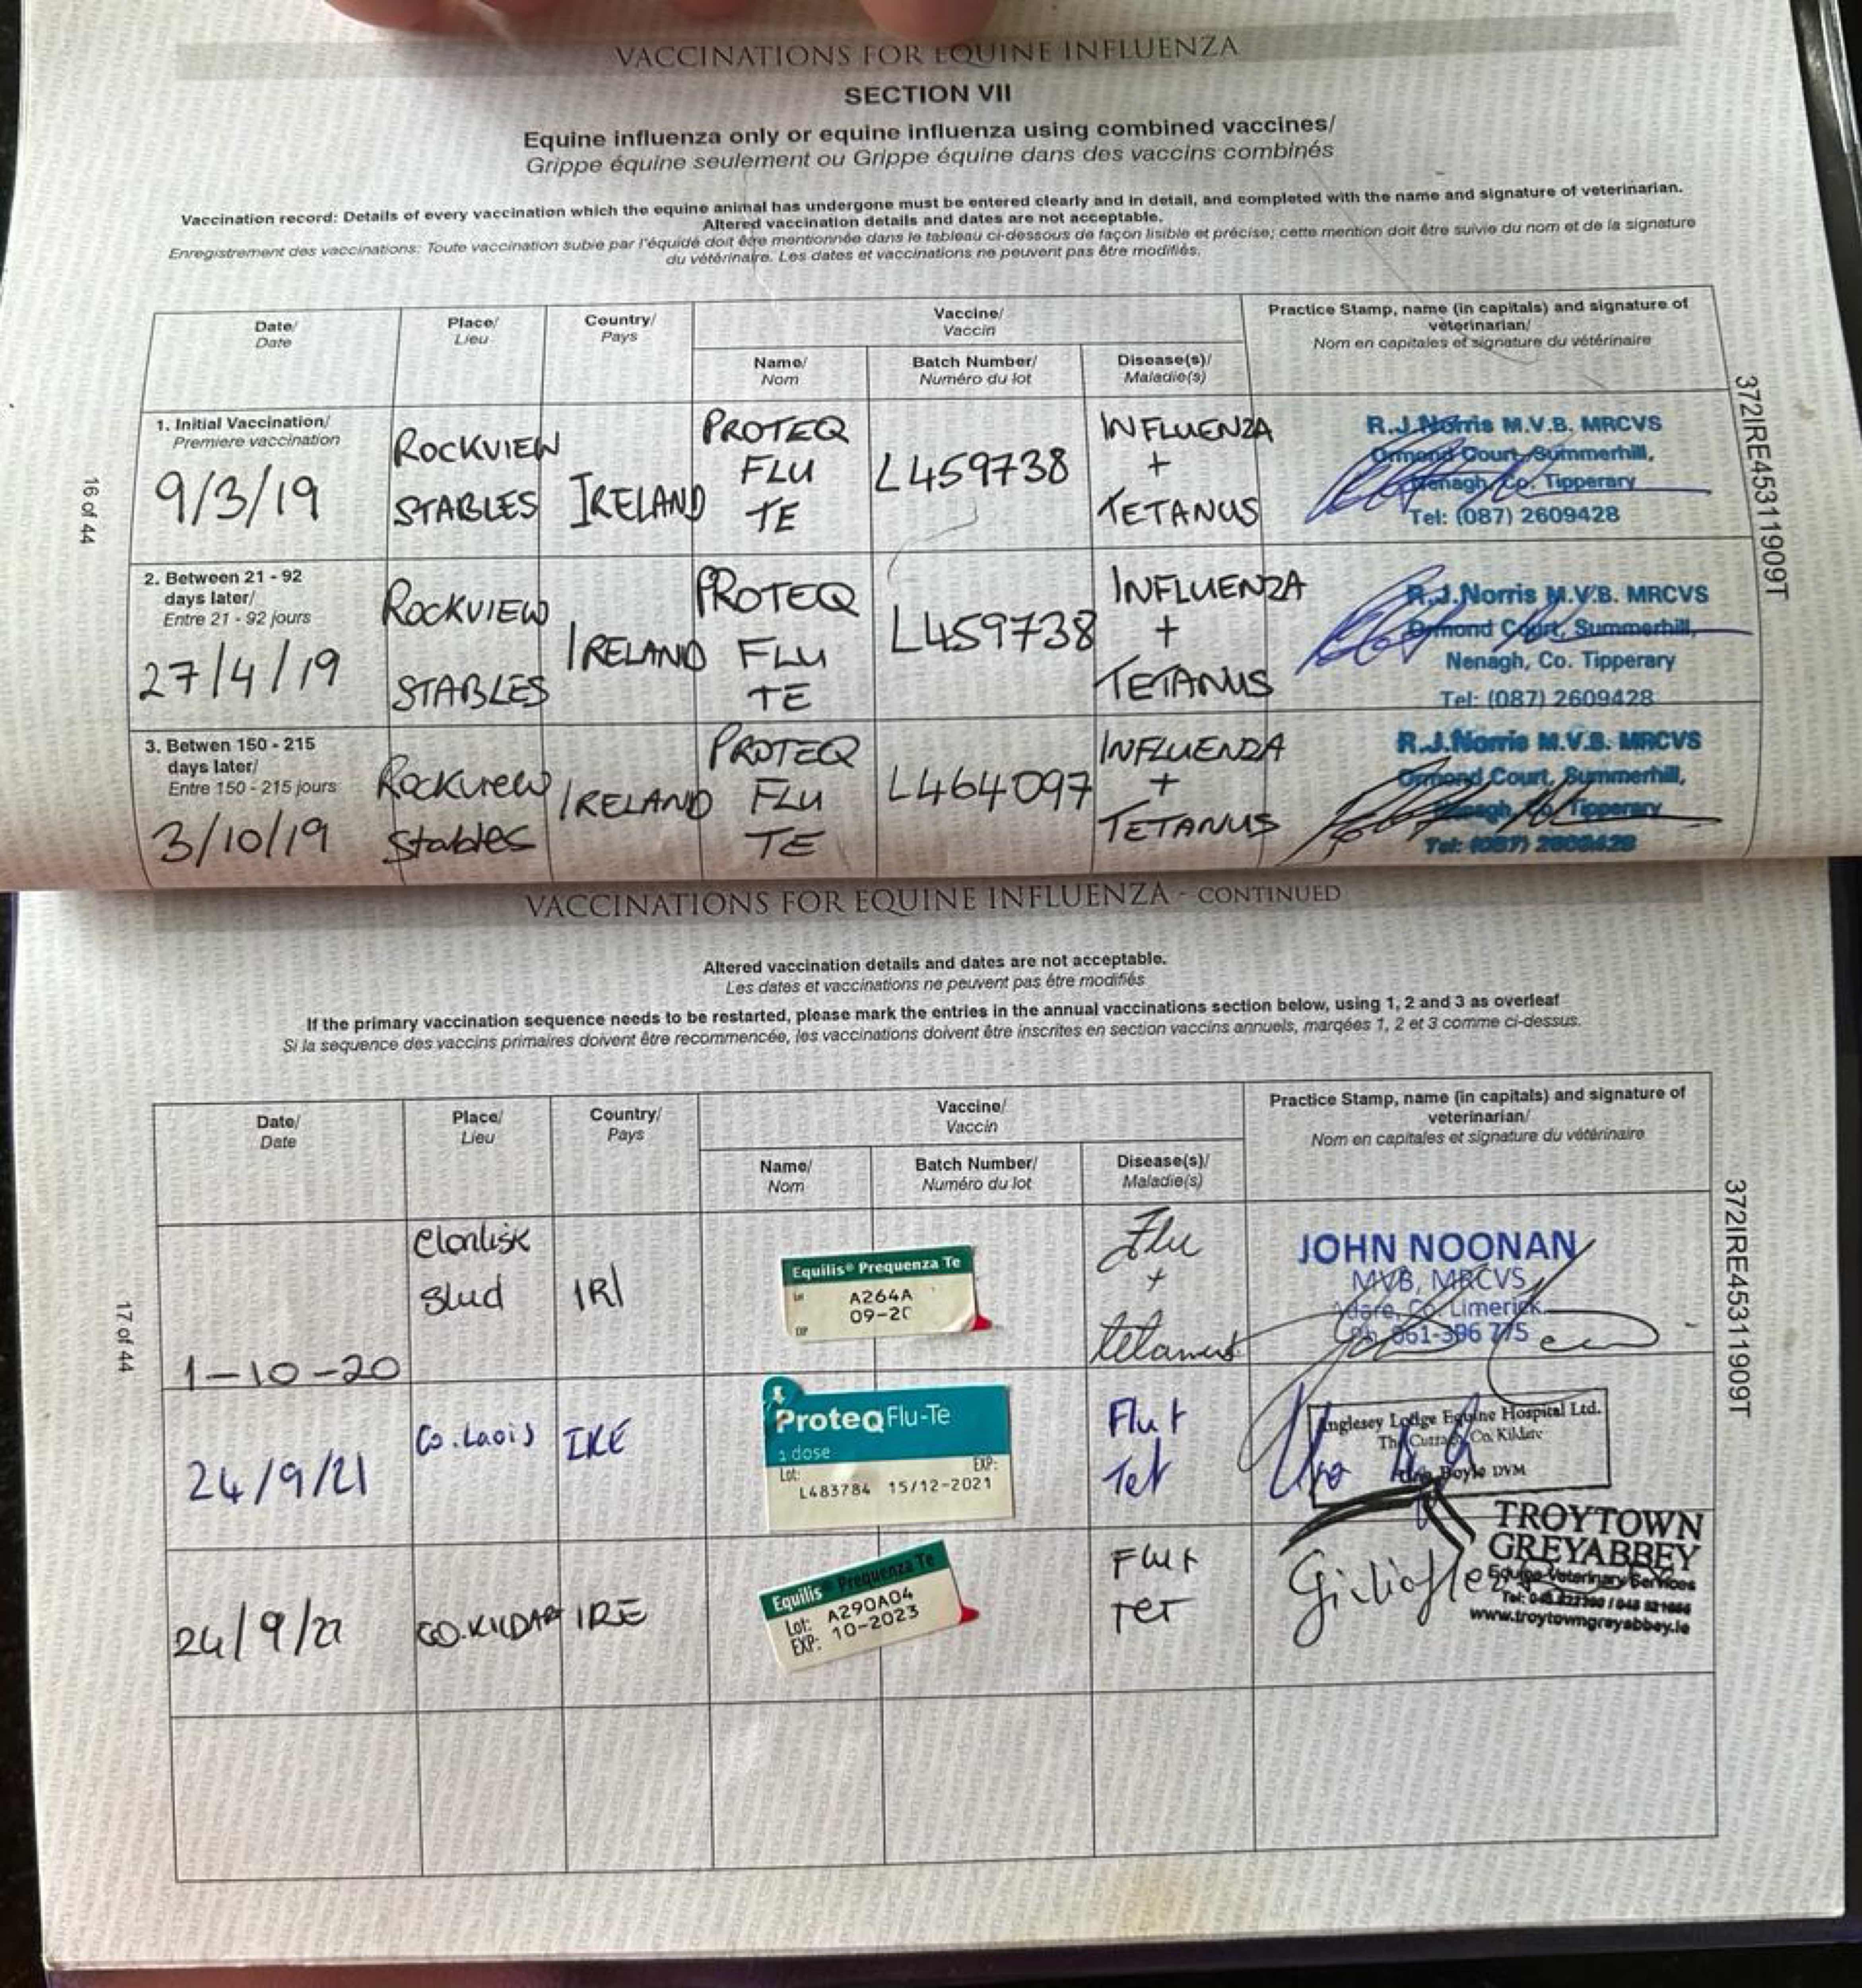 VACCINATIONS FOR EQUINE INFLUENZA
SECTION VII
Equine influenza only or equine influenza using combined vaccines/
Grippe équine seulement ou Grippe équine dans des vaccins combinés
Vaccination record: Details of every vaccination which the equine animal has undergone must be entered clearly and in detail, and completed with the name and signature of veterinarian.
Altered vaccination details and dates are not acceptable.
Enregistrement des vaccinations: Toute vaccination subie par l'équidé doit être mentionnée dans le tableau ci-dessous de façon lisible et précise; cette mention doit être suivie du nom et de la signature
du vétérinaire. Les dates et vaccinations ne peuvent pas être modifiés.
Date/
Date
Place/
Lieu
Country/
Pays
Vaccine/
Vaccin
Name/
Nom
Batch Number/
Numéro du lot
Disease(s)/
Maladie(s)
Practice Stamp, name (in capitals) and signature of
veterinarian/
Nom en capitales et signature du vétérinaire
1. Initial Vaccination/
Premiere vaccination
9/3/19
ROCKVIEW
STABLES
IRELAND
PROTEQ
FLU
TE
L459738
INFLUENZA
+
TETANUS
R.J.Norris M.V.B. MRCVS
Ormond Court, Summerhill,
Nenagh, Co. Tipperary
Tel: (087) 2609428
2. Between 21 - 92
days later/
Entre 21 - 92 jours
27/4/19
ROCKVIEW
STABLES
IRELAND
PROTEQ
FLU
TE
L459738
INFLUENZA
+
TETANUS
R.J.Norris M.V.B. MRCVS
Ormond Court, Summerhill,
Nenagh, Co. Tipperary
Tel: (087) 2609428
3. Betwen 150 - 215
days later/
Entre 150 - 215 jours
3/10/19
Rockview
Stables
IRELAND
PROTEQ
FLU
TE
L464097
INFLUENZA
+
TETANUS
R.J.Norris M.V.B. MRCVS
Ormond Court, Summerhill,
Nenagh, Co. Tipperary
Tel: (087) 2609428
16 of 44
372IRE45311909T
VACCINATIONS FOR EQUINE INFLUENZA - CONTINUED
Altered vaccination details and dates are not acceptable.
Les dates et vaccinations ne peuvent pas être modifiés
If the primary vaccination sequence needs to be restarted, please mark the entries in the annual vaccinations section below, using 1, 2 and 3 as overleaf
Si la sequence des vaccins primaires doivent être recommencée, les vaccinations doivent être inscrites en section vaccins annuels, marqées 1, 2 et 3 comme ci-dessus.
Date/
Date
Place/
Lieu
Country/
Pays
Vaccine/
Vaccin
Name/
Nom
Batch Number/
Numéro du lot
Disease(s)/
Maladie(s)
Practice Stamp, name (in capitals) and signature of
veterinarian/
Nom en capitales et signature du vétérinaire
1-10-20
Clonlisk
Slud
IRl
Equilis® Prequenza Te
Lot
A264A
09-20
EXP
Flu
+
tetanus
JOHN NOONAN
MVB, MRCVS,
Adare, Co. Limerick.
Ph. 061-396 775
24/9/21
Co. Laois
IRE
ProteqFlu-Te
1 dose
Lot: EXP:
L483784 15/12-2021
Flu +
Tet
Anglesey Lodge Equine Hospital Ltd.
The Curragh, Co. Kildare
Boyle DVM
24/9/22
CO.KILDARE
IRE
Equilis® Prequenza Te
Lot: A290A04
EXP: 10-2023
Flu +
TET
TROYTOWN
GREYABBEY
Equine Veterinary Services
www.troytowngreyabbey.ie
17 of 44
372IRE45311909T